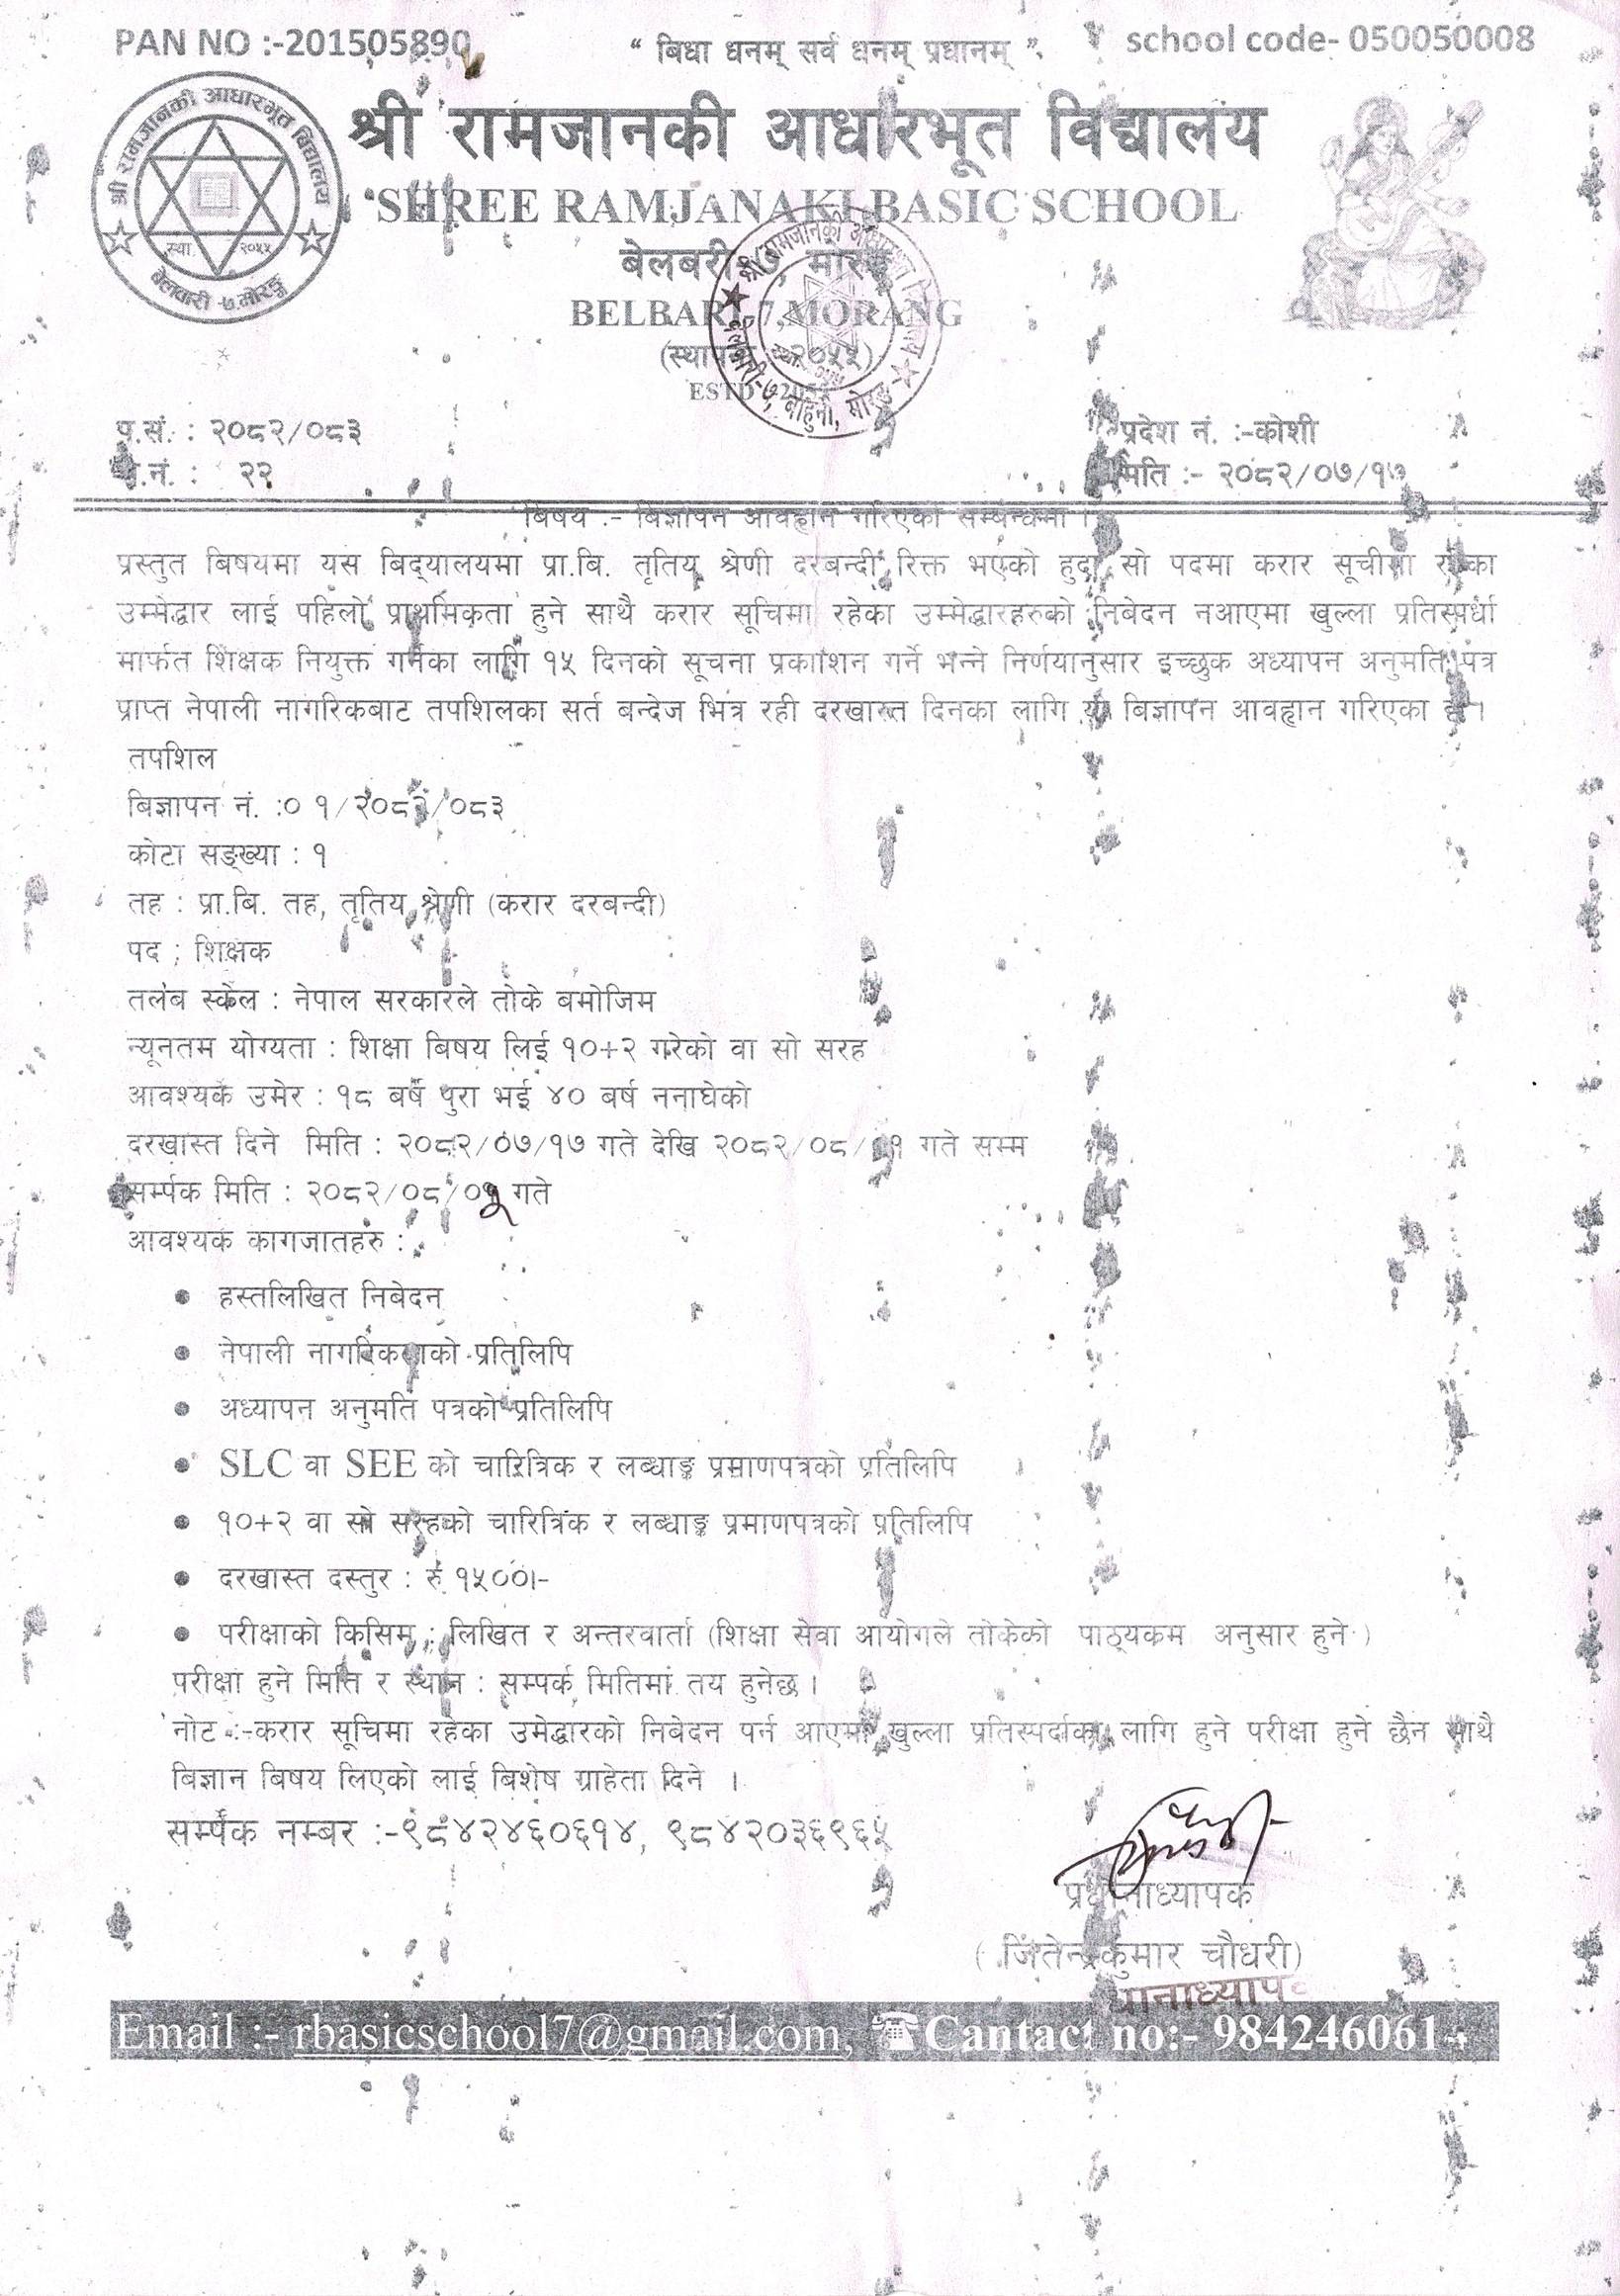 PAN NO :-201505890
“ बिधा धनम् सर्व धनम् प्रधानम् ”
school code- 050050008
श्री रामजानकी आधारभूत विद्यालय
SHREE RAMJANAKI BASIC SCHOOL
श्री रामजानकी आधारभूत विद्यालय
स्था २०५५
बेलवारी -७,मोरङ्ग
बेलबरी-७, मोरङ्ग
BELBARI 7,MORANG
(स्थापना २०५५)
ESTD
प.सं. : २०८२/०८३
प्रदेश नं. :-कोशी
नं. : २२
मिति :- २०८२/०७/१७
बिषय :- बिज्ञापन आवह्वान गरिएको सम्बन्धमा ।
प्रस्तुत बिषयमा यस बिद्यालयमा प्रा.बि. तृतिय श्रेणी दरबन्दी रिक्त भएको हुदा सो पदमा करार सूचीमा रहेका
उम्मेद्धार लाई पहिलो प्राथमिकता हुने साथै करार सूचिमा रहेका उम्मेद्धारहरुको निबेदन नआएमा खुल्ला प्रतिस्पर्धा
मार्फत शिक्षक नियुक्त गर्नका लागि १५ दिनको सूचना प्रकाशन गर्ने भन्ने निर्णयानुसार इच्छुक अध्यापन अनुमति पत्र
प्राप्त नेपाली नागरिकबाट तपशिलका सर्त बन्देज भित्र रही दरखास्त दिनका लागि यो बिज्ञापन आवह्वान गरिएको छ ।
तपशिल
बिज्ञापन नं. :० १/२०८२/०८३
कोटा सङ्ख्या : १
तह : प्रा.बि. तह, तृतिय श्रेणी (करार दरबन्दी)
पद : शिक्षक
तलब स्केल : नेपाल सरकारले तोके बमोजिम
न्यूनतम योग्यता : शिक्षा बिषय लिई १०+२ गरेको वा सो सरह
आवश्यक उमेर : १८ बर्ष पुरा भई ४० बर्ष ननाघेको
दरखास्त दिने मिति : २०८२/०७/१७ गते देखि २०८२/०८/ गते सम्म
सर्म्पक मिति : २०८२/०८/ गते
आवश्यक कागजातहरु :
• हस्तलिखित निबेदन
• नेपाली नागरिकताको प्रतिलिपि
• अध्यापन अनुमति पत्रको प्रतिलिपि
• SLC वा SEE को चारित्रिक र लब्धाङ्क प्रमाणपत्रको प्रतिलिपि
• १०+२ वा सो सरहको चारित्रिक र लब्धाङ्क प्रमाणपत्रको प्रतिलिपि
• दरखास्त दस्तुर : रु १५००।-
• परीक्षाको किसिम : लिखित र अन्तरवार्ता (शिक्षा सेवा आयोगले तोकेको पाठ्यकम अनुसार हुने )
परीक्षा हुने मिति र स्थान : सम्पर्क मितिमा तय हुनेछ ।
नोट :-करार सूचिमा रहेका उमेद्धारको निबेदन पर्न आएमा खुल्ला प्रतिस्पर्दाका लागि हुने परीक्षा हुने छैन साथै
बिज्ञान बिषय लिएको लाई बिशेष ग्राहेता दिने ।
सर्म्पक नम्बर :-९८४२४६०६१४, ९८४२०३६९६५
प्रधानाध्यापक
( जितेन्द्रकुमार चौधरी)
Email :- rbasicschool7@gmail.com, ☎Cantact no:- 9842460614